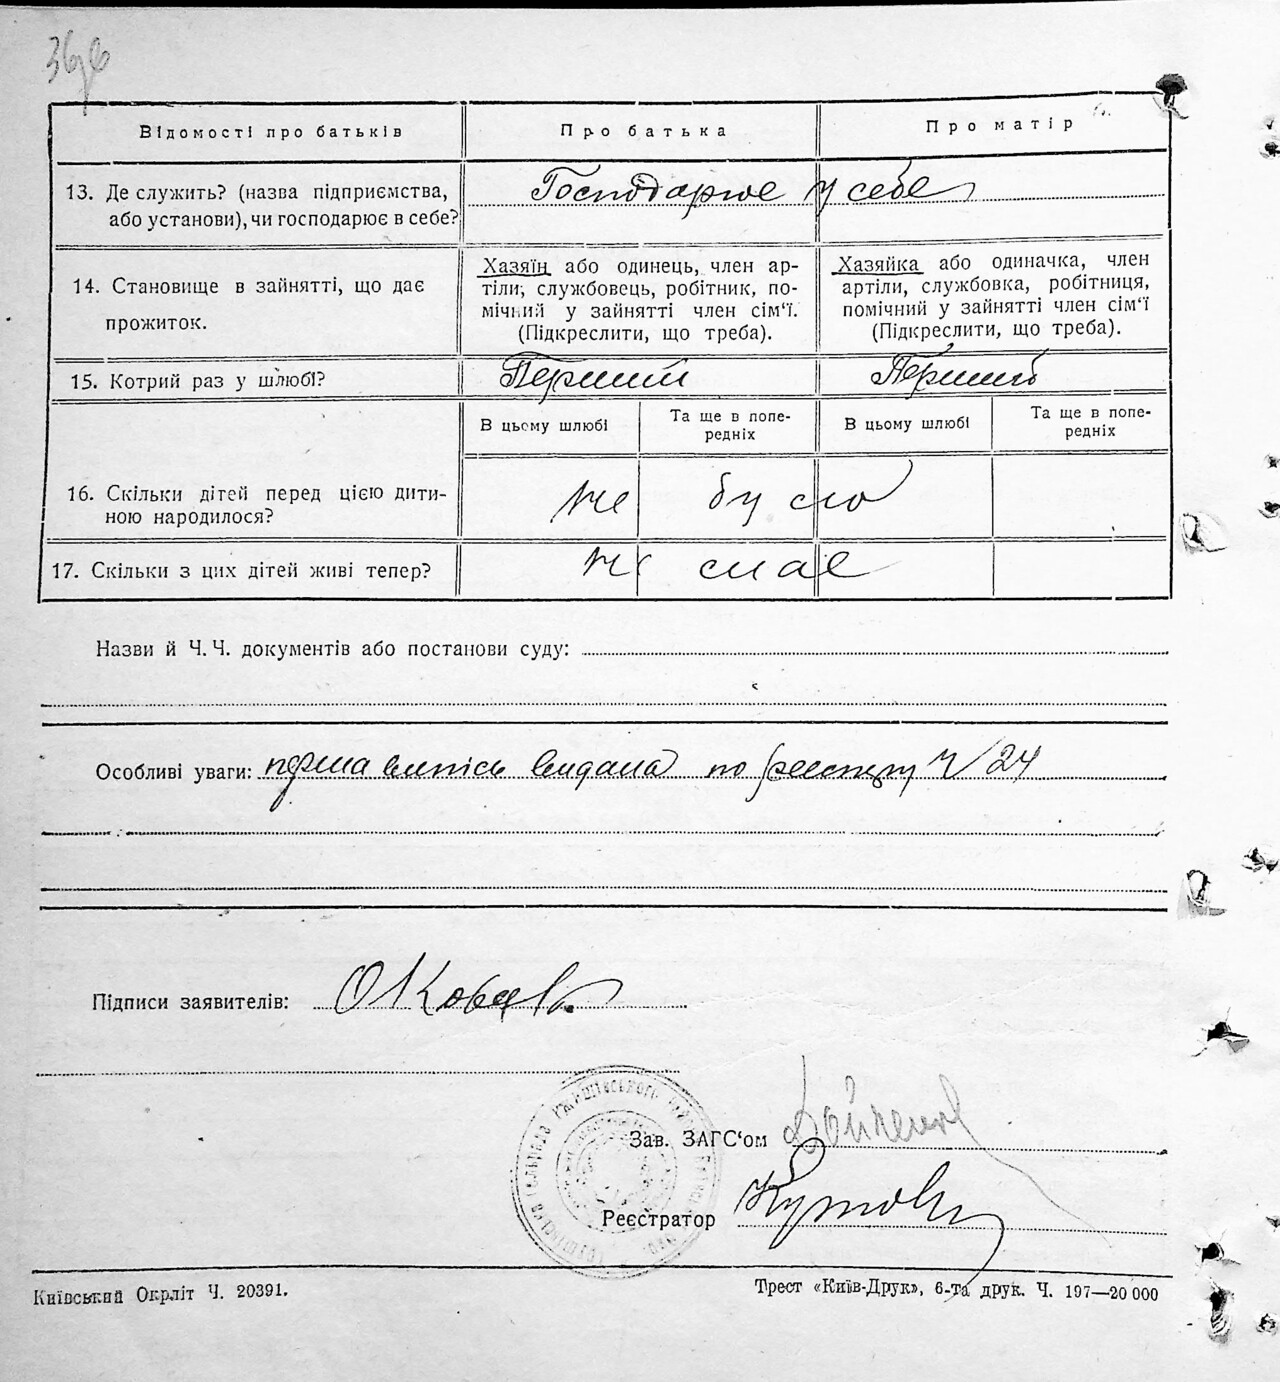 Відомості про батьків
Про батька
Про матір
13. Де служить? (назва підприємства,
або установи), чи господарює в себе?
Господарює у себе
14. Становище в зайнятті, що дає
прожиток.
Хазяїн або одинець, член ар-
тіли, службовець, робітник, по-
мічний у зайнятті член сім‘ї.
(Підкреслити, що треба).
Хазяйка або одиначка, член
артіли, службовка, робітниця,
помічний у зайнятті член сім‘ї
(Підкреслити, що треба).
15. Котрий раз у шлюбі?
Перший
Перший
В цьому шлюбі
Та ще в попе-
редніх
В цьому шлюбі
Та ще в попе-
редніх
16. Скільки дітей перед цією дити-
ною народилося?
не було
17. Скільки з цих дітей живі тепер?
не має
Назви й Ч. Ч. документів або постанови суду:
Особливі уваги: перша випись видана по реєстру Ч 24
Підписи заявителів:
Зав. ЗАГС‘ом
Реєстратор
Київський Окрліт Ч. 20391.
Трест «Київ-Друк», 6-та друк. Ч. 197—20 000